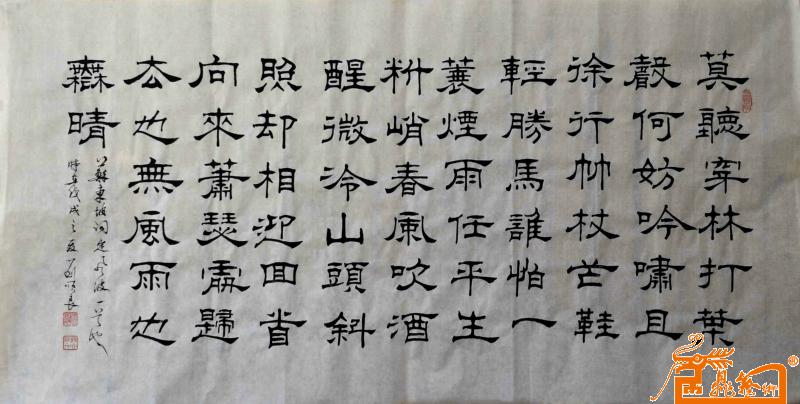 莫聽穿林打葉
聲何妨吟嘯且
徐行竹杖芒鞋
輕勝馬誰怕一
蓑煙雨任平生
料峭春風吹酒
醒微冷山頭斜
照却相迎回首
向來蕭瑟處歸
去也無風雨也
無晴
蘇東坡詞定風波一首
時在戊戌之夏